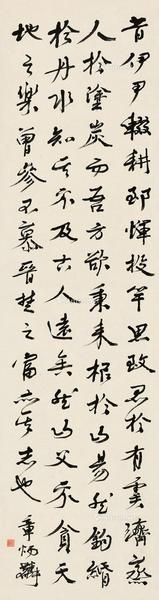 昔伊尹輟耕郅惲投竿思致君於有虞濟蒸
人於塗炭而吾方欲秉耒耜於山昜沈鉤緡
於丹水知其不及古人遠矣然山父不貪天
地之樂曾參不慕晉楚之富亦其志也
章炳麟